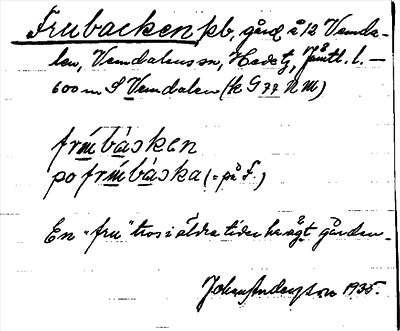 Frubacken pb, gård å 12 Vemda-
len, Vemdalens sn, Hede tg, Jämtl. l. —
600 m S Vemdalen (k G 77 N M)
frm̄båsken
po frm̄båska (= på F.)
En "fru" tros i äldre tider ha ägt gården.
Johan Anderson 1935.